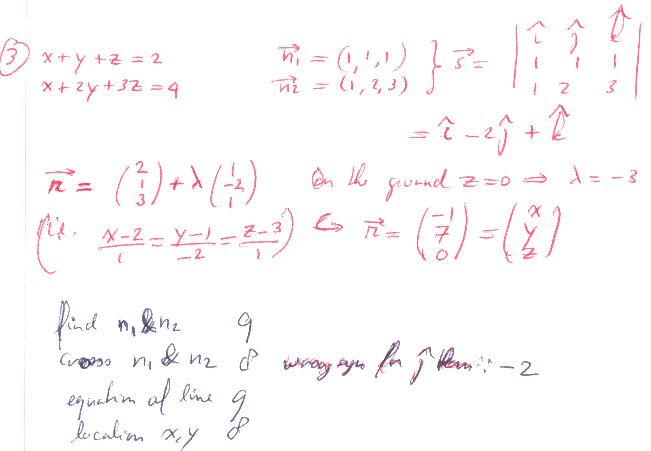 ③ x+y+z=2 n₁⃗ = (1,1,1) } s⃗ = | î ĵ k̂ |
x+2y+3z=4 n₂⃗ = (1,2,3) | 1 1 1 |
| 1 2 3 |
= î -2ĵ + k̂
r⃗ = (2 1 3) + λ(1 -2 1) On the ground z=0 ⇒ λ = -3
(i.e. (x-2)/1 = (y-1)/-2 = (z-3)/1) ↪ r⃗ = (-1 7 0) = (x y z)
find n₁ & n₂ 9
cross n₁ & n₂ 8 wrong sign for ĵ term: -2
equation of line 9
location x, y 8